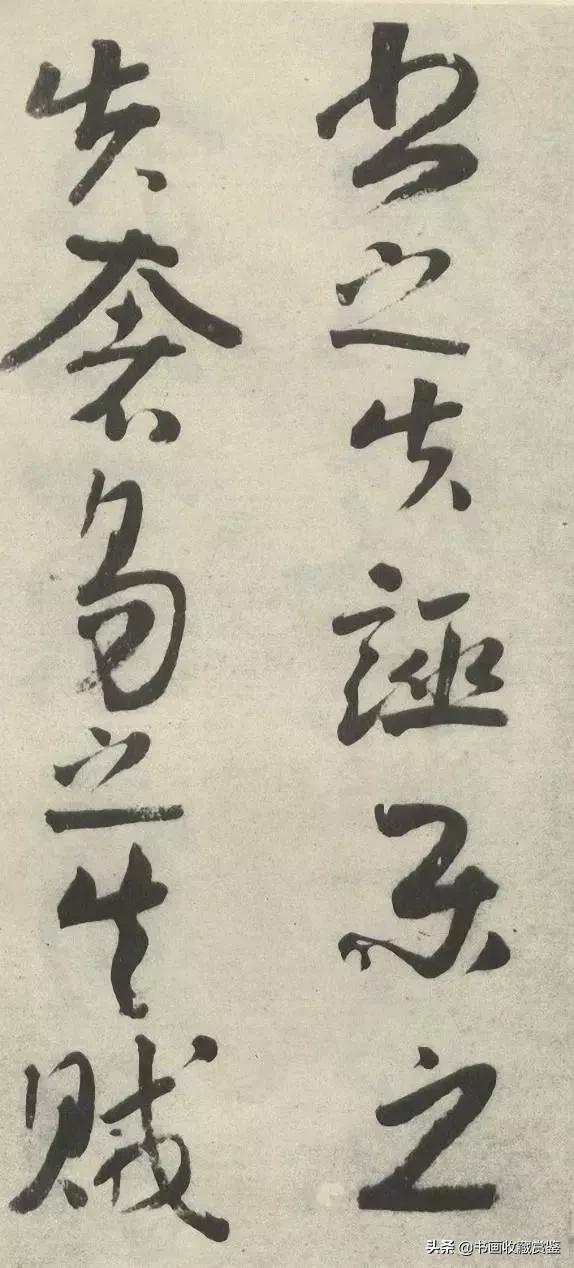 書之失誣樂之
失奢易之失賊
头条 @书画收藏赏鉴